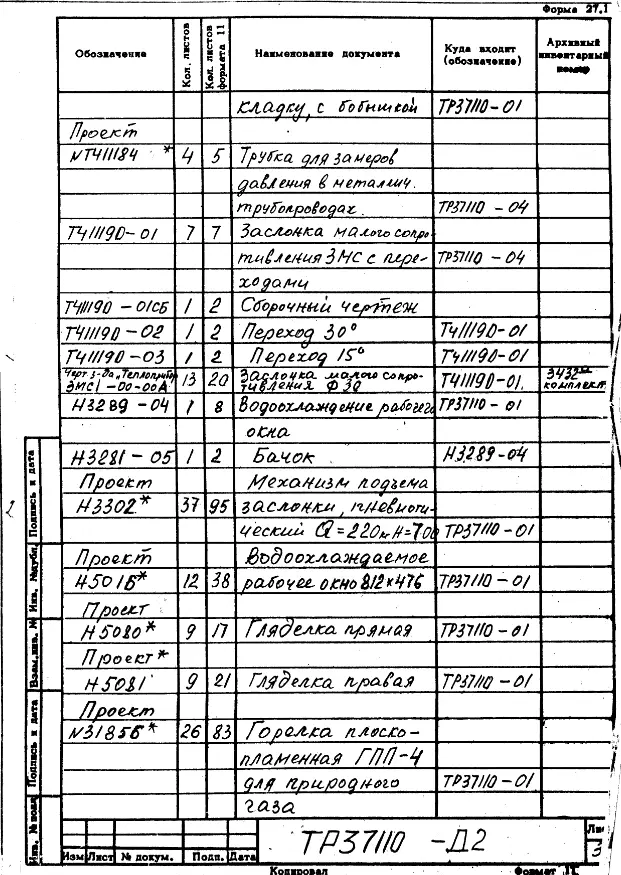 Форма 27.1
Обозначение | Кол. листов | Кол. листов формата 11 | Наименование документа | Куда входит (обозначение) | Архивный инвентарный номер
кладку, с бобышкой | ТР37110-01
Проект
NТ411184 * | 4 | 5 | Трубка для замеров
давления в металич.
трубопроводах. | ТР37110-04
Т411190-01 | 7 | 7 | Заслонка малого сопро-
тивления ЗМС с пере- | ТР37110-04
ходами
Т411190-01СБ | 1 | 2 | Сборочный чертеж
Т411190-02 | 1 | 2 | Переход 30° | Т411190-01
Т411190-03 | 1 | 2 | Переход 15° | Т411190-01
Черт. з-да „Теплоприбор
ЗМС1-00-00А | 13 | 20 | Заслонка малого сопро-
тивления | Т411190-01. | комплект.
Н3289-04 | 1 | 8 | Водоохлаждение рабочего | ТР37110-01
окна
Н3281-05 | 1 | 2 | Бачок | Н3289-04
Проект | Механизм подъема
Н3302* | 37 | 95 | заслонки, пневмати-
ческий Q=220кг Н=700 | ТР37110-01
Проект | Водоохлаждаемое
Н501Б* | 12 | 38 | рабочее окно 812×476 | ТР37110-01
Проект
Н5080* | 9 | 17 | Гляделка прямая | ТР37110-01
Проект*
Н5081 | 9 | 21 | Гляделка правая | ТР37110-01
Проект
N3185Б* | 26 | 83 | Горелка плоско-
пламенная ГПП-4
для природного | ТР37110-01
газа
Подпись и дата
Инв. №дубл.
Взам.инв. №
Подпись и дата
Инв. № подл.
ТР37110-Д2
3
Изм Лист № докум. Подп. Дата
Копировал Формат 11